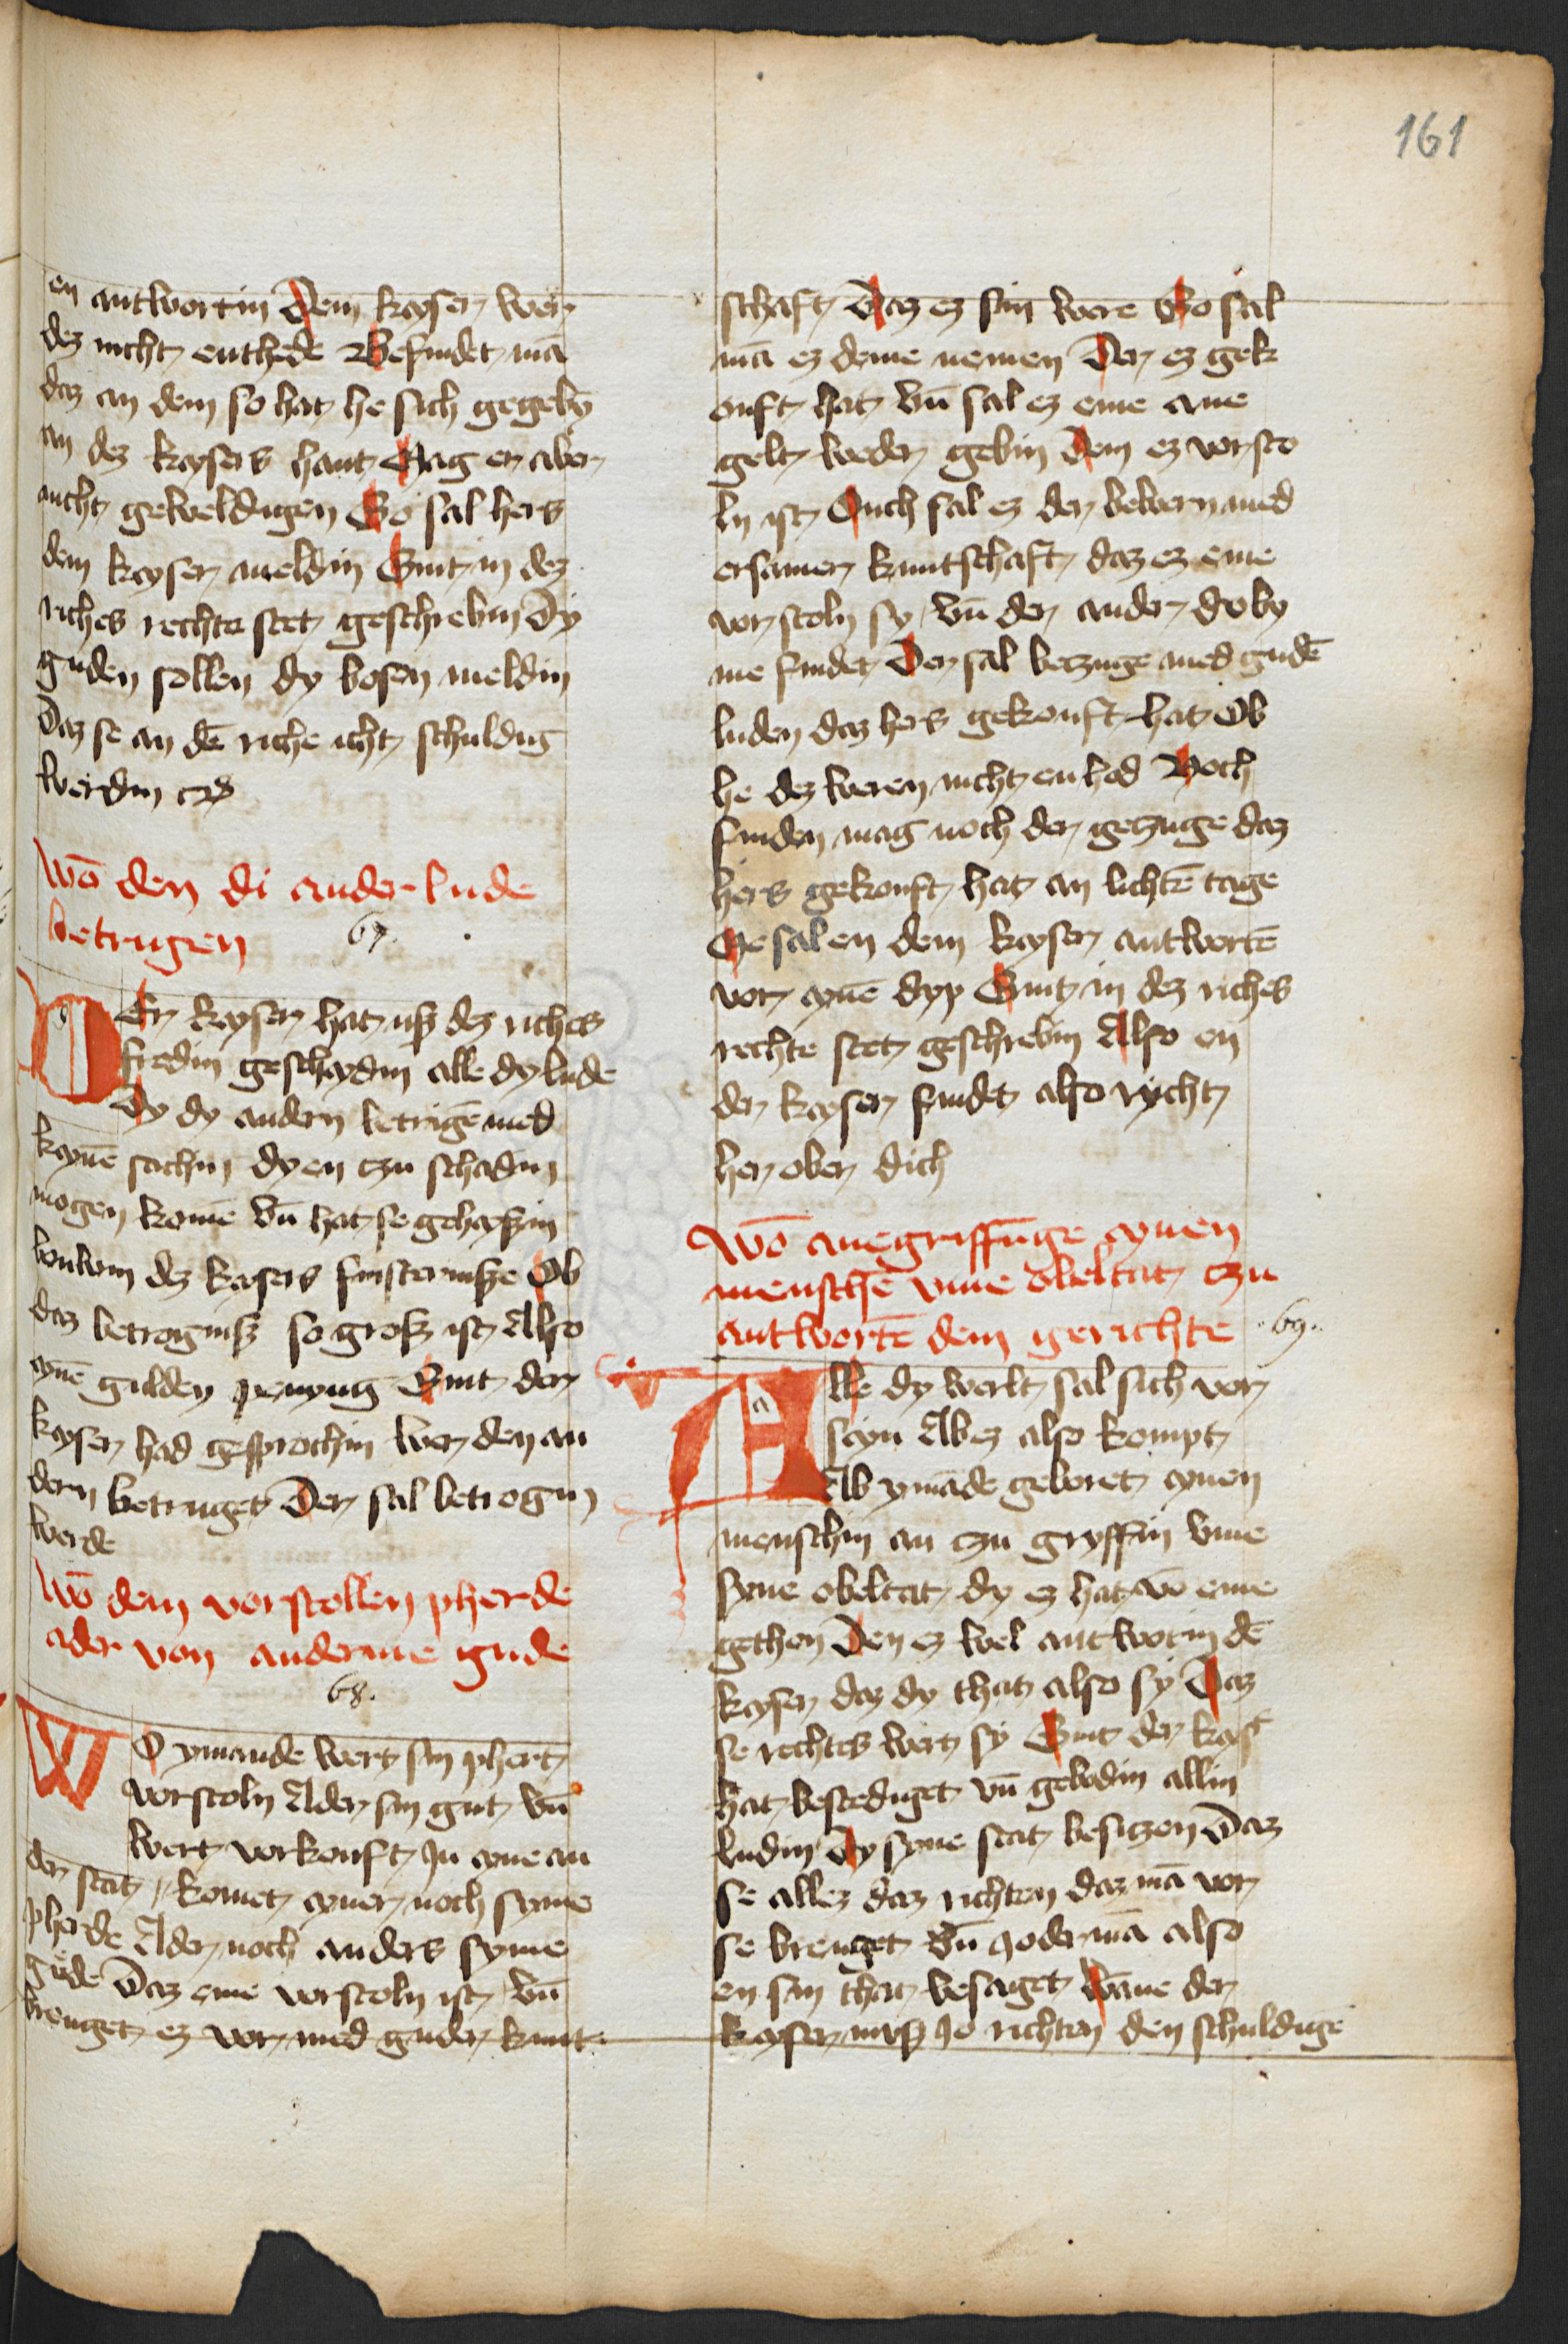 161
en antwortin Dem kayser wer
dez nicht enthede Befindet mā
daz an dem so hat he sich gegebī
an dez kaysers hant Mag er aber
nicht geweldigen So sal hers
dem kayser meldin Sint in dez
riches rechte stet geschrebin Dy
guden sollen dy bosen meldin
Daz se an dē riche icht schuldig
werdin
Wō den di ander lude
betrugen 67.
DEr kayser hat uß dez riches
fredin geschaydin alle dy lude
Dy dy andern betrigē med
kaynē sachin dy en czu schadin
mogen komē vn̄ hat se gehayßin
dez kaysers finsternisse Ob
daz betrogniß so groß ist Also
aynē gulden penyng Sint der
kayser had gesprochin wer den an
dern betruget Der sal betrogin
werde
Wō dem vorstollen pherde
ader von anderme gude
68.
WO ymande wert sin phert
vorstoln Ader sin gut vn̄
wert vorkouft In ayne an
der stat komet ayner noch syme
pherde Ader noch anders syme
gude Daz eme vorstoln ist vn̄
brenget ez vor med guder kunt
schaft Daz ez sin were So sal
mā ez deme nemen Der ez gek
ouft hat vn̄ sal ez eme ane
gelt weder gebin Dem ez vorsto
ln ist Ouch sal ez der bewern med
ersamer kuntschaft daz ez eme
vorstoln sy vn̄ der ander do by
me findet Der sal betzuge med gudē
luden daz hers gekouft hat Ob
he dez weren nicht en had Noch
finden mag noch der getzuge daz
hers gekouft hat an lichtē tage
Me sal en dem kayser antwortē
vor aynē dyp Sint in dez riches
rechte stet geschrebin Also en
der kayser findet also richt
her ober dich
Wō anegriffūge aynen
menschē vme obeltat czu
antwortē dem gerichte 69.
Alle dy werlt sal sich vor
sayn Ab ez also kompt
Ab ymāde geboret aynen
menschin an czu gryffin vme
syne obeltat dy ez hat wō eme
gethon Den ez wel antwortin dē
kayser daz dy that also sy Daz
se rechtes wert sy Sint der kays
hat bestediget vn̄ gebodin allin
ludin Dy syne stat besitzen Daz
se allez daz richten daz mā vor
se brenget Vn̄ Joderman̄ also
en sin that besaget wāne der
kayser muß Jo richten den schuldigē